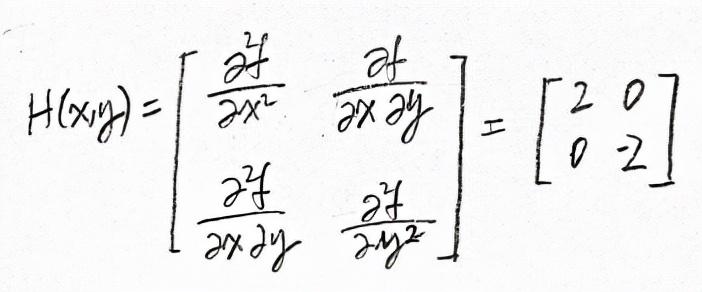 H(x,y) = [ ∂²f/∂x² ∂f/∂x∂y ; ∂²f/∂x∂y ∂²f/∂y² ] = [ 2 0 ; 0 -2 ]